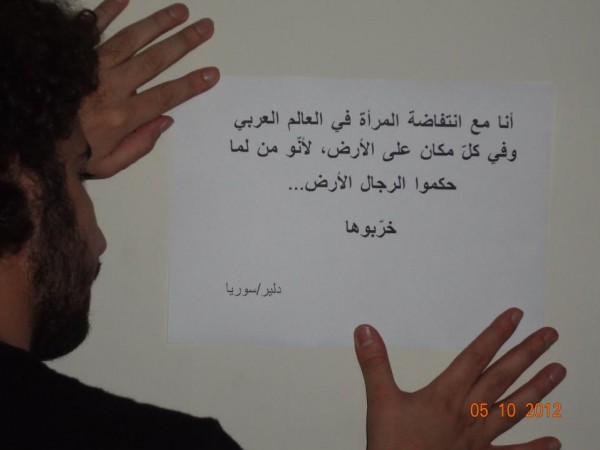 أنا مع انتفاضة المرأة في العالم العربي
وفي كلّ مكان على الأرض، لأنّو من لما
حكموا الرجال الأرض...
خرّبوها
دلير/سوريا
05 10 2012